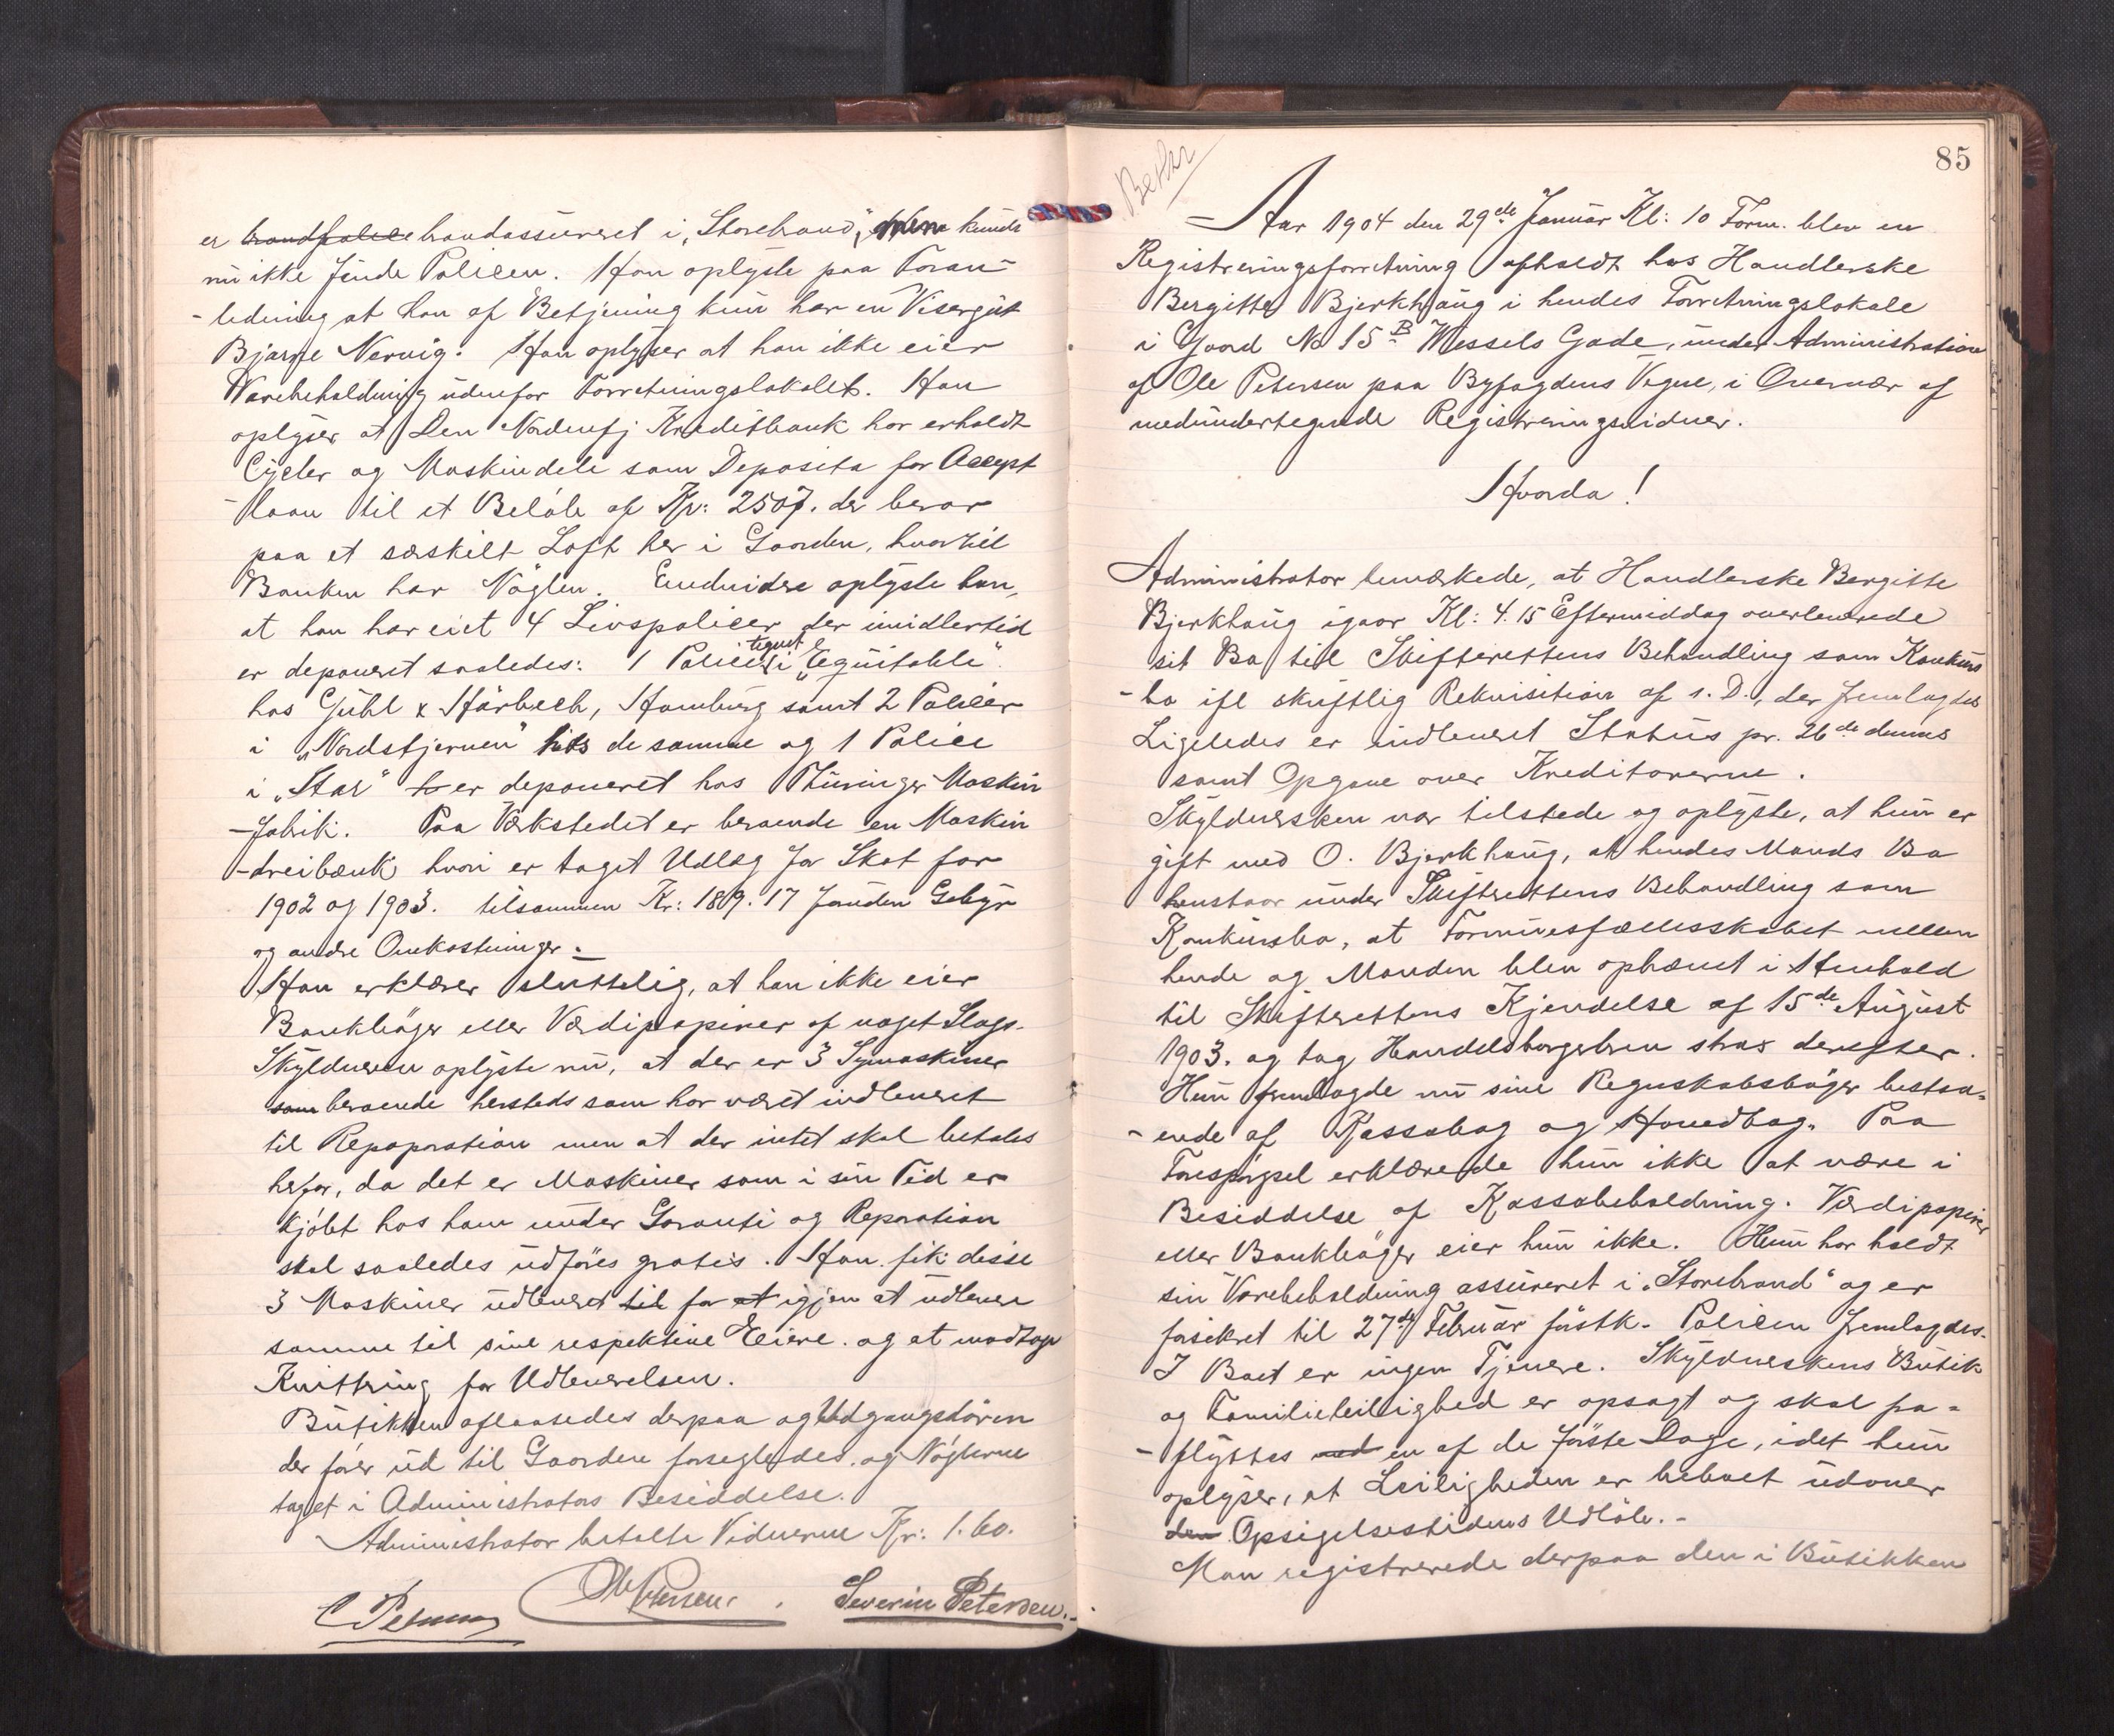 er brandpolice brandassureret i „Storebrand“, men kunde
nu ikke finde Policen. Han oplyste paa Foran-
-ledning at han af Betjening kun har en Visergut
Bjarne Nervig. Han oplyser at han ikke eier
Varebeholdning udenfor Forretningslokalet. Han
oplyser at Den Nordenfj Kreditbank har erholdt
Cycler og Maskindele som Deposita for Accept
-laan til et Beløb af Kr: 2507. der beror
paa et særskilt Loft her i Gaarden, hvortil
Banken har Nøglen. Endvidere oplyste han,
at han har eiet 4 Livspolicer der imidlertid
er deponeret saaledes: 1 Police tegnet i „Equitable“.
hos Guhl & Harbeck, Hamburg samt 2 Policer
i „Nordstjernen“ hos de samme og 1 Police
i „Star“ er deponeret hos Thüringer Maskin
-fabrik. Paa Værkstedet er beroende en Maskin
-dreibænk hvori er taget Udlæg for Skat for
1902 og 1903. tilsammen Kr: 189.17 foruden Gebyr
og andre Omkostninger.
Han erklærer sluttelig, at han ikke eier
Bankbøger eller Værdipapirer af noget Slags.
Skyldneren oplyste nu, at der er 3 Symaskiner
som beroende hersteds som har været indleveret
til Repaparation men at der intet skal betales
herfor, da det er Maskiner som i sin Tid er
kjøbt hos ham under Garanti og Reparation
skal saaledes udføres gratis. Han fik disse
3 Maskiner udleveret til for at igjen at udlevere
samme til sine respektive Eiere. og at modtage
Kvittering for Udleverelsen.
Butikken aflaasedes derpaa og Udgangsdøren
der fører ud til Gaarden forsegledes. og Nøglerne
taget i Administrators Besiddelse.
Administrator betalte Vidnerne Kr: 1.60.
C Petersen Ole Petersen. Severin Petersen.
85
Aar 1904 den 29de Januar Kl: 10 Form. blev en
Registreringsforretning afholdt hos Handlerske
Bergitte Bjerkhaug i hendes Forretningslokale
i Gaard No 15B Wessels Gade, under Administration
af Ole Petersen paa Byfogdens Vegne, i Overvær af
medundertegnede Registreringsvidner.
Hvorda!
Administrator bemærkede, at Handlerske Bergitte
Bjerkhaug igaar Kl: 4.15 Eftermiddag overleverede
sit Bo til Skifterettens Behandling som Konkurs
-bo ifl skriftlig Rekvisition af s. D., der fremlagdes
Ligeledes er indleveret Status pr. 26de dennes
samt Opgave over Kreditorerne.
Skyldnersken var tilstede og oplyste, at hun er
gift med O. Bjerkhaug, at hendes Mands Bo
henstaar under Skifterettens Behandling som
Konkursbo, at Formuesfællesskabet mellem
hende og Manden blev ophævet i Henhold
til Skifterettens Kjendelse af 15de August
1903. og tog Handelsborgerbrev strax derefter.
Hun fremlagde nu sine Regnskabsbøger bestaa-
-ende af Kassabog og Hovedbog. Paa
Forespørgsel erklærede hun ikke at være i
Besiddelse af Kassabeholdning. Værdipapirer
eller Bankbøger eier hun ikke. Hun har holdt
sin Varebeholdning assureret i „Storebrand“ og er
forsikret til 27de Februar førstk. Policen fremlagdes.
I Boet er ingen Tjenere. Skyldnerskens Butik
og Familieleilighed er opsagt og skal fra-
-flyttes ved en af de første Dage, idet hun
oplyser, at Leiligheden er beboet udover
den Opsigelsestidens Udløb.-
Man registrerede derpaa den i Butikken